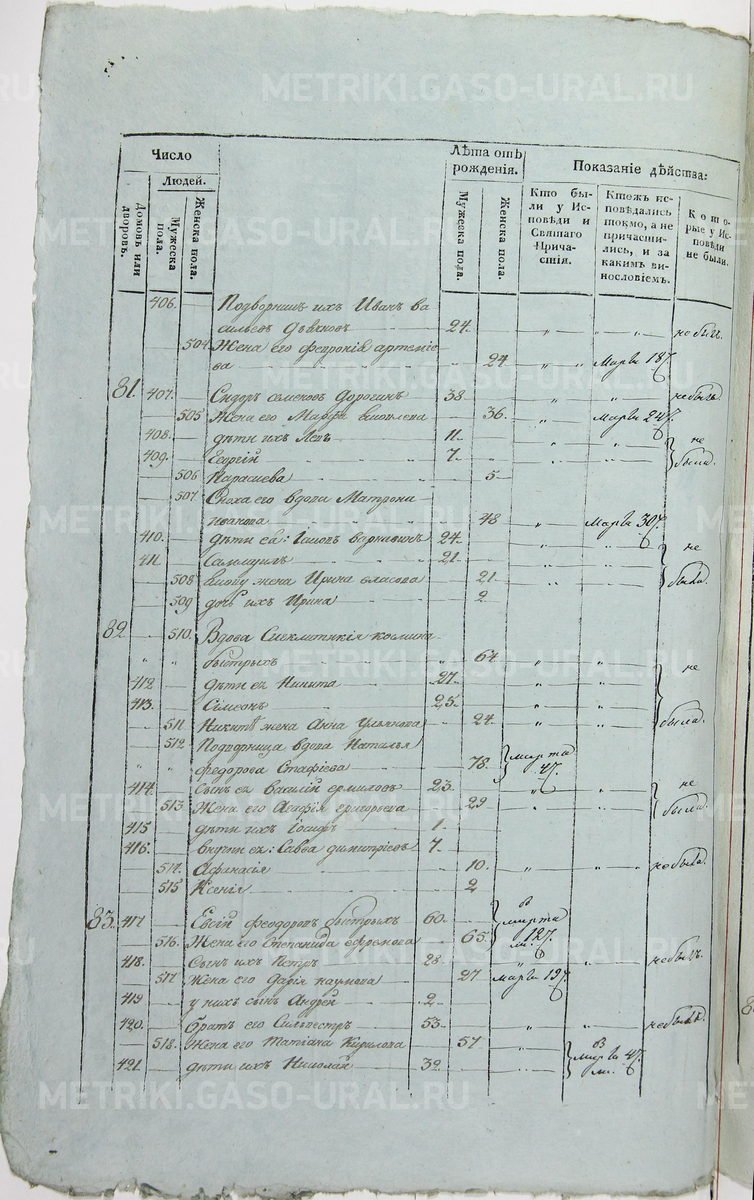 METRIKI.GASO-URAL.RU
Число
Людей.
Домовъ или дворовъ.
Мужеска пола.
Женска пола.
Лѣта отъ рожденія.
Мужеска пола.
Женска пола.
Показаніе дѣйства:
Кто бы-
ли у Ис-
повѣди и
Святаго
Прича-
стія.
Ктожъ ис-
повѣдались
токмо, а не
причасти-
лись, и за
какимъ ви-
нословіемъ.
Кото-
рые у Ис-
повѣди
не были.
406. Подворникъ ихъ Иванъ ва
сильевъ 24. не былъ.
504 Жена его Феѵронія артемие
ва 24 Марта 18
81. 407. Сидоръ семеновъ Дорогинъ 38. не былъ
505 Жена его Марфа 36. Марта 24
408. дѣти ихъ Левъ 11. не
409. Георгій 7. были.
506 Парасчева 5
507. Сноха его вдова Матрона
иванова 48 Марта 30
410. дѣти ея: 24.
411 Самуилъ 21. не
508 жена Ирина власова 21 были.
509 дочь ихъ Ирина 2
82 510. Вдова козмина
быстрыхъ 64 не
412 дѣти ея Никита 27.
413. Симеонъ 25.
511. Никиты жена Анна Ульянова 24. были.
512 вдова Наталья
федорова 78. марта
414. сынъ ея василій ермиловъ 23. не
513 Жена его Агафія григорьева 29 были.
415 дѣти ихъ Іосифъ 1.
416. внучки ея: Савва димитріевъ 7.
514. Афанасія 10. не была.
515 Ксенія 2
83. 417 феодоровъ быстрыхъ 60. марта
516. Жена его Степанида 65. 12
418. Сынъ ихъ Петръ 28 не былъ.
517 Жена его Дарія наумова 27 Марта 19
419 у нихъ сынъ Андрей 2
420. братъ его Сильвестръ 53. не былъ.
518. Жена его Татіана Кирилова 57
421. дѣти ихъ Николай 32. Марта